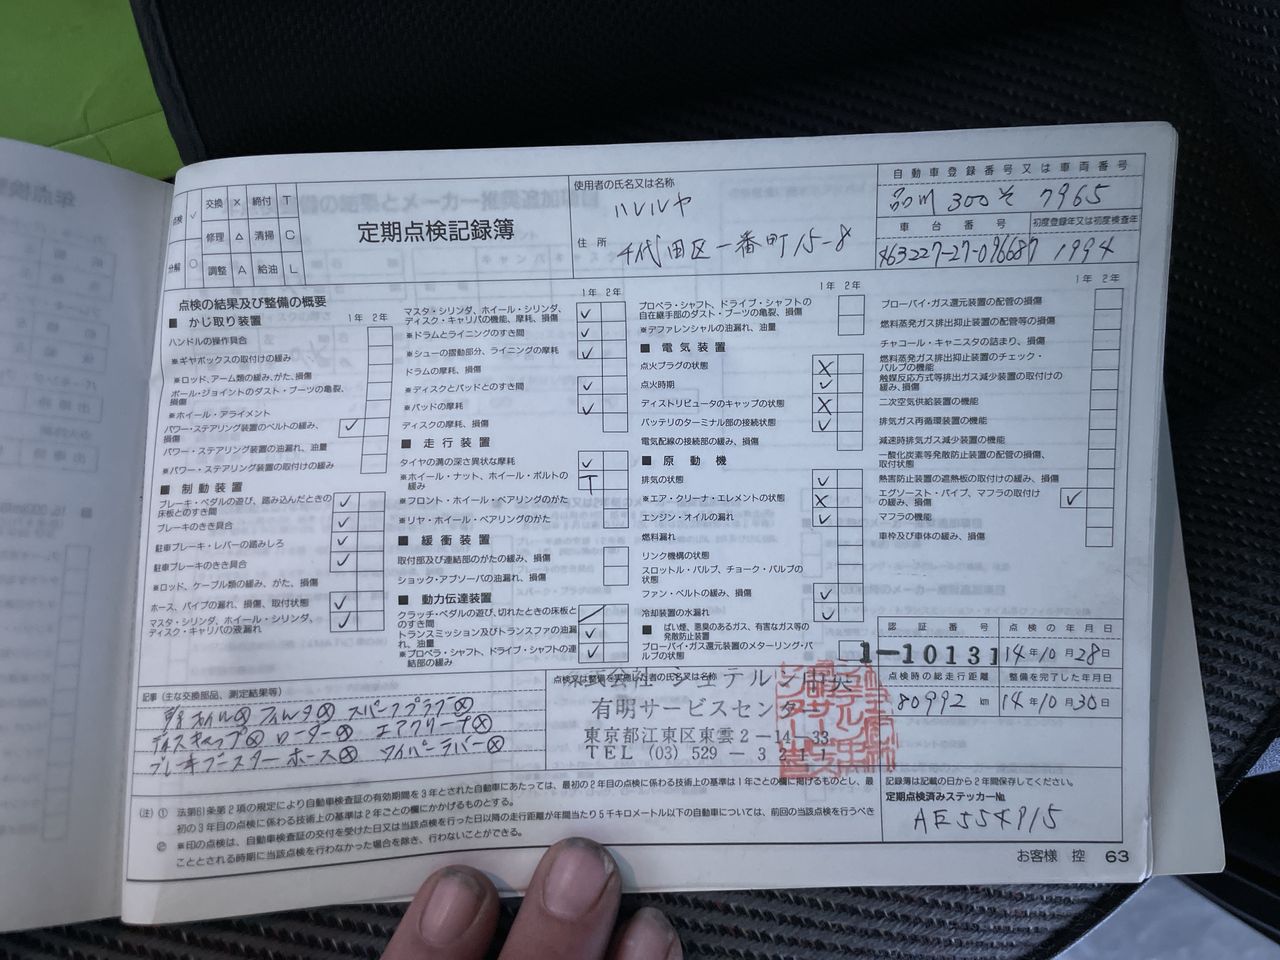 点検 ✓ 交換 × 締付 T
修理 △ 清掃 C
分解 ○ 調整 A 給油 L
定期点検記録簿
使用者の氏名又は名称
ハレルヤ
住所
千代田区一番町15-8
自動車登録番号又は車両番号
品川 300 そ 7965
車台番号
初度登録年又は初度検査年
1994
点検の結果及び整備の概要
■ かじ取り装置
1年 2年
ハンドルの操作具合
※ギヤボックスの取付けの緩み
※ロッド、アーム類の緩み、がた、損傷
ボール・ジョイントのダスト・ブーツの亀裂、損傷
※ホイール・アライメント
パワー・ステアリング装置のベルトの緩み、損傷 ✓
パワー・ステアリング装置の油漏れ、油量
※パワー・ステアリング装置の取付けの緩み
■ 制動装置
ブレーキ・ペダルの遊び、踏み込んだときの床板とのすき間 ✓
ブレーキのきき具合 ✓
駐車ブレーキ・レバーの踏みしろ ✓
駐車ブレーキのきき具合 ✓
※ロッド、ケーブル類の緩み、がた、損傷
ホース、パイプの漏れ、損傷、取付状態 ✓
マスタ・シリンダ、ホイール・シリンダ、ディスク・キャリパの液漏れ ✓
1年 2年
マスタ・シリンダ、ホイール・シリンダ、ディスク・キャリパの機能、摩耗、損傷 ✓
※ドラムとライニングのすき間 ✓
※シューの摺動部分、ライニングの摩耗 ✓
ドラムの摩耗、損傷
※ディスクとパッドとのすき間 ✓
※パッドの摩耗 ✓
ディスクの摩耗、損傷
■ 走行装置
タイヤの溝の深さ異状な摩耗 ✓
※ホイール・ナット、ホイール・ボルトの緩み T
※フロント・ホイール・ベアリングのがた
※リヤ・ホイール・ベアリングのがた
■ 緩衝装置
取付部及び連結部のがたの緩み、損傷
ショック・アブソーバの油漏れ、損傷
■ 動力伝達装置
クラッチ・ペダルの遊び、切れたときの床板とのすき間
トランスミッション及びトランスファの油漏れ、油量 ✓
※プロペラ・シャフト、ドライブ・シャフトの連結部の緩み ✓
1年 2年
プロペラ・シャフト、ドライブ・シャフトの自在継手部のダスト・ブーツの亀裂、損傷
※デファレンシャルの油漏れ、油量
■ 電気装置
点火プラグの状態 X
点火時期 ✓
ディストリビュータのキャップの状態 X
バッテリのターミナル部の接続状態 ✓
電気配線の接続部の緩み、損傷
■ 原動機
排気の状態 ✓
※エア・クリーナ・エレメントの状態 X
エンジン・オイルの漏れ ✓
燃料漏れ
リンク機構の状態
スロットル・バルブ、チョーク・バルブの状態
ファン・ベルトの緩み、損傷 ✓
冷却装置の水漏れ ✓
■ ばい煙、悪臭のあるガス、有害なガス等の発散防止装置
ブローバイ・ガス還元装置のメターリング・バルブの状態
1年 2年
ブローバイ・ガス還元装置の配管の損傷
燃料蒸発ガス排出抑止装置の配管等の損傷
チャコール・キャニスタの詰まり、損傷
燃料蒸発ガス排出抑止装置のチェック・バルブの機能
触媒反応方式等排出ガス減少装置の取付けの緩み、損傷
二次空気供給装置の機能
排気ガス再循環装置の機能
減速時排気ガス減少装置の機能
一酸化炭素等発散防止装置の配管の損傷、取付状態
熱害防止装置の遮熱板の取付けの緩み、損傷
エグゾースト・パイプ、マフラの取付けの緩み、損傷 ✓
マフラの機能
車枠及び車体の緩み、損傷
認証番号
1-10131
点検の年月日
14年10月28日
点検時の総走行距離
80992 km
整備を完了した年月日
14年10月30日
記事（主な交換部品、測定結果等）
オイル⊗ フィルタ⊗ スパークプラグ⊗
ディスキャップ⊗ ローター⊗ エアクリーナ⊗
ブレーキブースターホース⊗ ワイパーラバー⊗
点検又は整備を実施した者の氏名又は名称
株式会社シュテルン中央
有明サービスセンター
東京都江東区東雲2-14-33
TEL (03) 529-3211
記録簿は記載の日から2年間保存してください。
定期点検済みステッカー№
AE554915
(注) ① 法第61条第2項の規定により自動車検査証の有効期間を3年とされた自動車にあたっては、最初の2年目の点検に係わる技術上の基準は1年ごとの欄に掲げるものとし、最初の3年目の点検に係わる技術上の基準は2年ごとの欄にかかげるものとする。
② ※印の点検は、自動車検査証の交付を受けた日又は当該点検を行った日以降の走行距離が年間当たり5千キロメートル以下の自動車については、前回の当該点検を行うべきこととされる時期に当該点検を行わなかった場合を除き、行わないことができる。
お客様 控 63